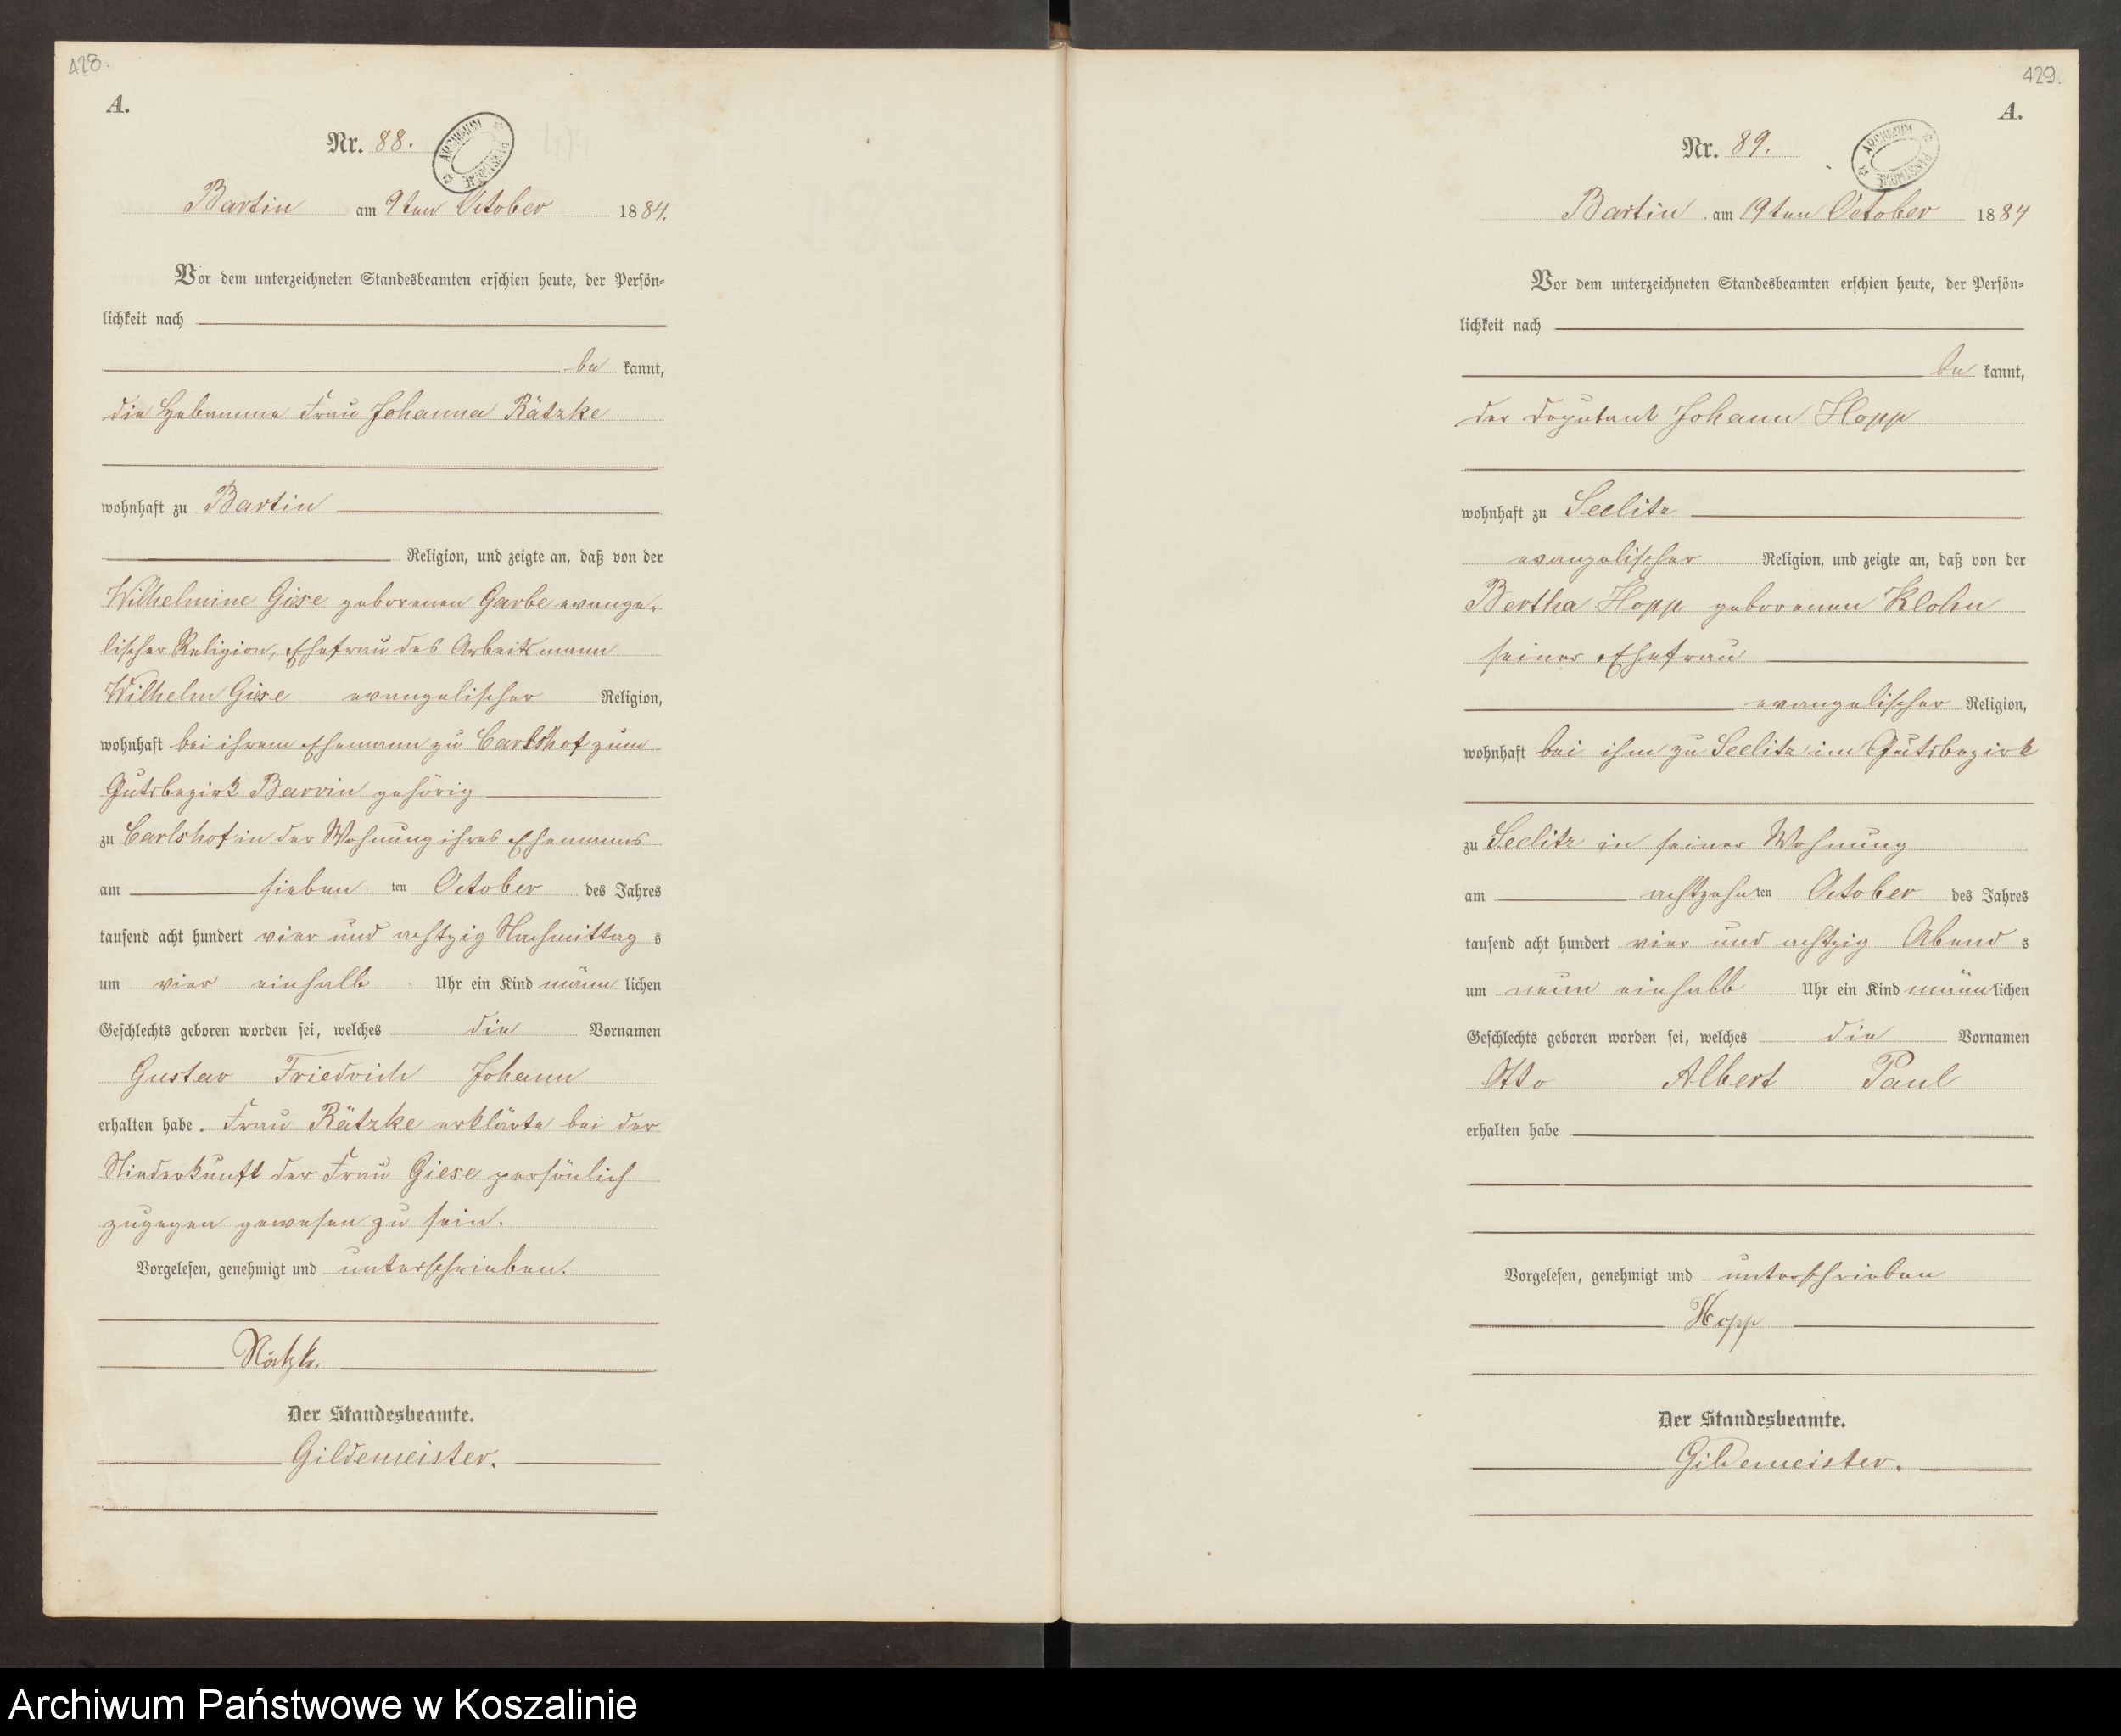 428.
A.
Nr. 88.
ARCHIWUM PAŃSTWOWE
Bartin am 9ten October 1884.
Vor dem unterzeichneten Standesbeamten erschien heute, der Persön-
lichkeit nach
be kannt,
die Hebamme Frau Johanna Rätzke
wohnhaft zu Bartin
Religion, und zeigte an, daß von der
Wilhelmine Giese geborenen Garbe evange-
lischer Religion, Ehefrau des Arbeitsmann
Wilhelm Giese evangelischer Religion,
wohnhaft bei ihrem Ehemann zu Carlshof zum
Gutsbezirk Barvin gehörig
zu Carlshof in der Wohnung ihres Ehemanns
am sieben ten October des Jahres
tausend acht hundert vier und achtzig Nachmittag s
um vier einhalb Uhr ein Kind männ lichen
Geschlechts geboren worden sei, welches die Vornamen
Gustav Friedrich Johann
erhalten habe. Frau Rätzke erklärte bei der
Niederkunft der Frau Giese persönlich
zugegen gewesen zu sein.
Vorgelesen, genehmigt und unterschrieben.
Rätzke.
Der Standesbeamte.
Gildemeister.
429.
A.
Nr. 89.
ARCHIWUM PAŃSTWOWE
Bartin am 19ten October 1884
Vor dem unterzeichneten Standesbeamten erschien heute, der Persön-
lichkeit nach
be kannt,
der Deputant Johann Hopp
wohnhaft zu Seelitz
evangelischer Religion, und zeigte an, daß von der
Bertha Hopp geborenen Klohn
seiner Ehefrau
evangelischer Religion,
wohnhaft bei ihm zu Seelitz im Gutsbezirk
zu Seelitz in seiner Wohnung
am achtzehn ten October des Jahres
tausend acht hundert vier und achtzig Abend s
um neun einhalb Uhr ein Kind männ lichen
Geschlechts geboren worden sei, welches die Vornamen
Otto Albert Paul
erhalten habe
Vorgelesen, genehmigt und unterschrieben
Hopp
Der Standesbeamte.
Gildemeister.
Archiwum Państwowe w Koszalinie